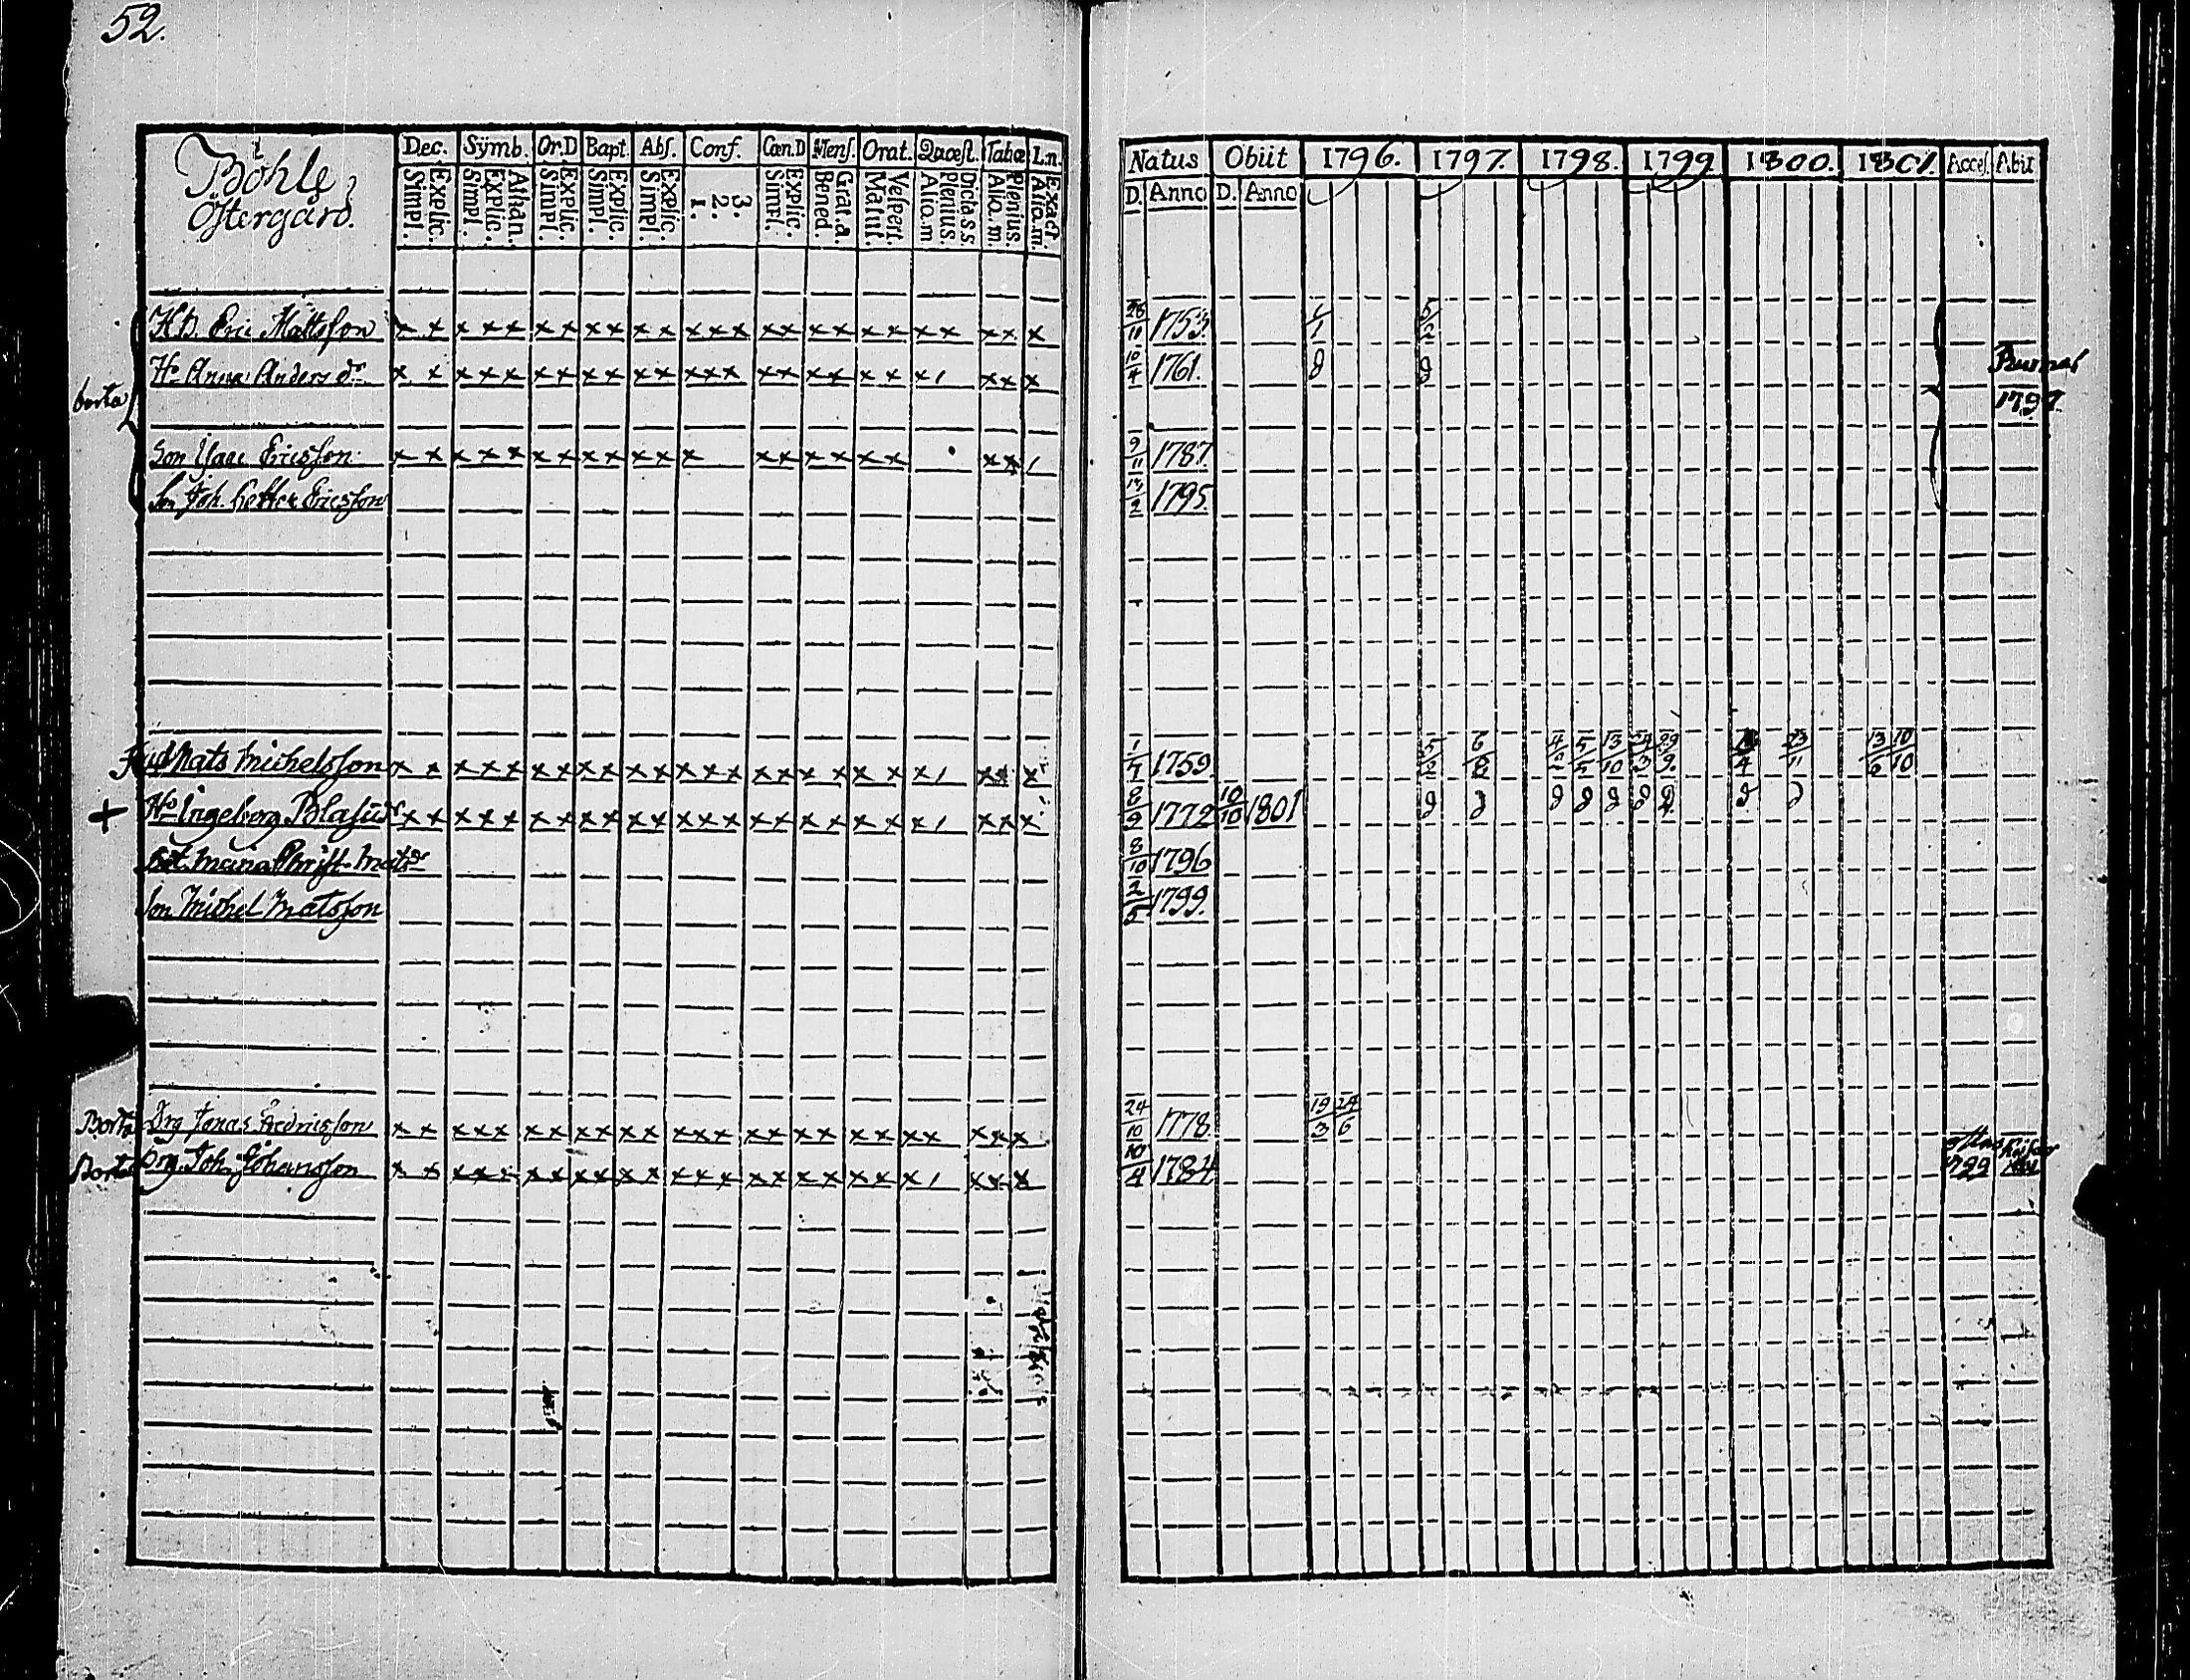 52.
Böhle
Östergård.
Dec. Symb. Or.D Bapt. Abs. Conf. Cœn.D Mens. Orat. Quæst. Tabæ L.n.
Simpl. Explic. Simpl. Explic. Athan. Simpl. Explic. Simpl. Explic. Simpl. Explic. 1. 2. 3. Simpl. Explic. Bened. Grat.a. Matut. Vespert. Aliq.m Plenius. Dic.ass Aliq.m. Plenius. Aliq.m. Exact.
Natus Obiit 1796. 1797. 1798. 1799. 1800. 1801. Acces. Abiit
D. Anno D. Anno
H.B. Eric Mattsson x x x x x x x x x x x x x x x x x x x x x x x x x 26/11 1753. 1/1 5/2
Ho Anna Anders dr x x x x x x x x x x x x x x x x x x x x 1 x x x 10/4 1761.
borta 1797.
Son Isaac Ericsson x x x x x x x x x x x x x x x x x x x x 1 9/11 1787.
Son Joh. Ericsson 13/2 1795.
Mats Michelsson x x x x x x x x x x x x x x x x x x x x x 1 x x x 1/7 1759. 5/2 4/2 5/5 13/10 29/9 23/11 13/6 10/10
+ Ho Ingeborg Blasii dr x x x x x x x x x x x x x x x x x x x x x 1 x x x 8/9 1772 10/10 1801
Dot. Maria Christ. Mats dr 8/10 1796
Son Michel Matsson 2/5 1799.
Borta Drg Jonas Fredricsson x x x x x x x x x x x x x x x x x x x x x x x x x 24/10 1778 19/3 24/6
Borta Drg. Joh. Johansson x x x x x x x x x x x x x x x x x x x x x 1 x x x 10/4 1784 1799